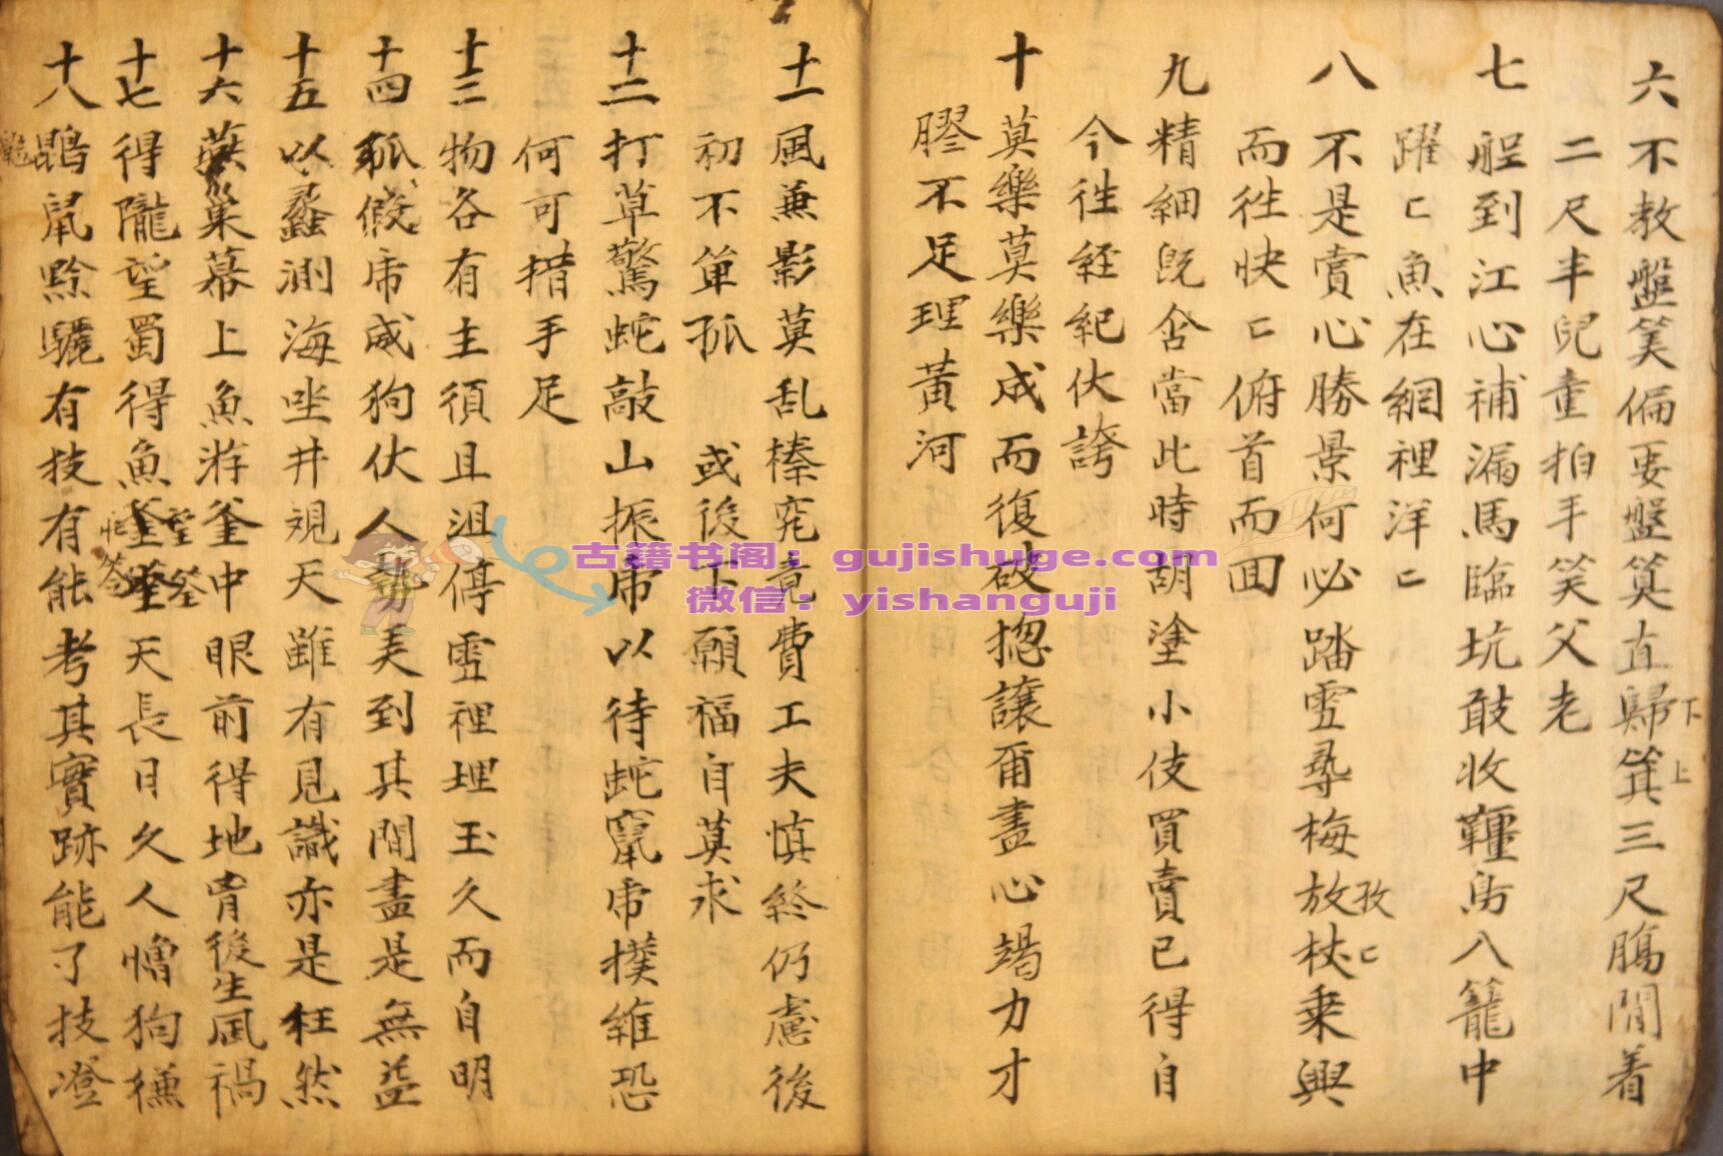 六 不教盤筭偏要盤筭直歸箕三尺腸閒着
下
上
二尺半兒童拍手笑父老
七 舡到江心補漏馬臨坑敢收韁鳥入籠中
躍匕魚在網裡洋匕
八 不是賣心勝景何必踏雪尋梅放杖乘興
孜匕
而徃快匕俯首而回
九 精細既含當此時胡塗小伎買賣已得自
今徃経紀伏誇
十 莫樂莫樂成而復破揔讓爾盡心竭力才
膠不足理黃河
十一 風兼影莫乱榛究竟費工夫慎終仍慮後
初不单孤 或後下願福自莫求
十二 打草驚蛇敲山振虎以待蛇竄虎撲維恐
何可措手足
十三 物各有主須且沮停雪裡埋玉久而自明
十四 狐假虎威狗伏人勢美到其間盡是無益
十五 以蠡測海坐井觀天雖有見識亦是枉然
十六 燕巢幕上魚游釜中眼前得地脊後生風禍
十七 得隴望蜀得魚望筌天長日久人憎狗嫌
望筌
忘筌
十八 鼯鼠黔驢有技有能考其實跡能了技澄
古籍书阁：gujishuge.com
微信：yishanguji